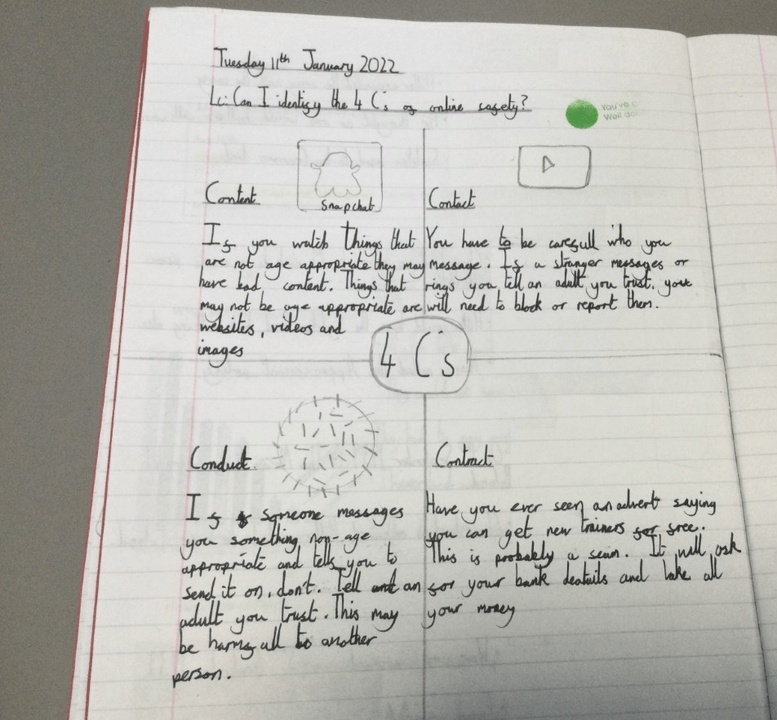 Tuesday 11th January 2022
Lc: Can I identify the 4 C's of online safety?
You've
Well do
Content
Snapchat
If you watch things that
are not age appropriate they may
have bad content. Things that
may not be age appropriate are
websites, videos and
images
Contact
You have to be carefull who you
message. If a stranger messages or
rings you tell an adult you trust. youe
will need to block or report them.
4 C's
Conduct
If someone messages
you something non-age
appropriate and tells you to
send it on, don't. Tell an
adult you trust. This may
be harmfall to another
person.
Contract
Have you ever seen an advert saying
you can get new trainers for free.
This is probably a scam. It will ask
for your bank deatails and take all
your money